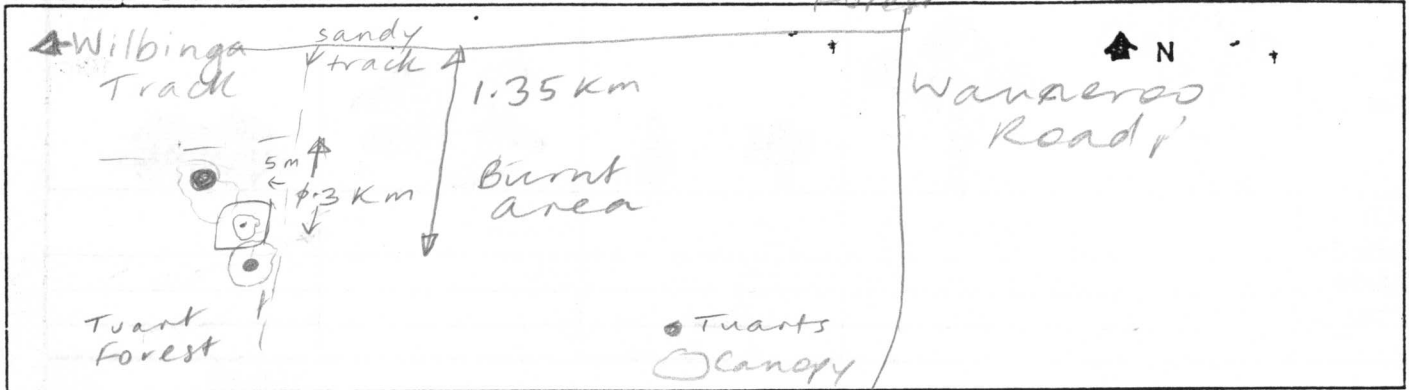 Forest
Wilbinga
Track
sandy
track
1.35 Km
N
Wanneroo
Road
5m
0.3 Km
Burnt
area
Tuart
Forest
Tuarts
Canopy